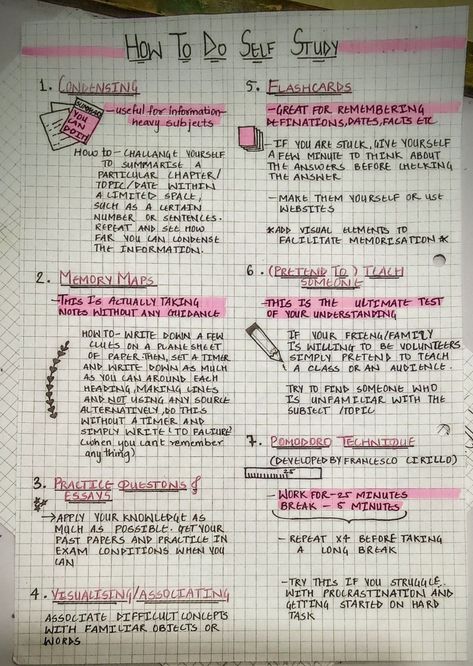 HOW TO DO SELF STUDY
1. CONDENSING
SUMMARY
YOU
CAN
DO IT!
- useful for information-
heavy subjects
HOW TO - CHALLANGE YOURSELF
TO SUMMARISE A
PARTICULAR CHAPTER/
TOPIC/DATE WITHIN
A LIMITED SPACE,
SUCH AS A CERTAIN
NUMBER OR SENTENCES.
REPEAT AND SEE HOW
FAR YOU CAN CONDENSE
THE INFORMATION.
2. MEMORY MAPS
- THIS IS ACTUALLY TAKING
NOTES WITHOUT ANY GUIDANCE
HOW TO - WRITE DOWN A FEW
CLUES ON A PLANE SHEET
OF PAPER. THEN, SET A TIMER
AND WRITE DOWN AS MUCH
AS YOU CAN AROUND EACH
HEADING, MAKING LINES
AND NOT USING ANY SOURCE
ALTERNATIVELY, DO THIS
WITHOUT A TIMER AND
SIMPLY WRITE 'TO FALIURE'
(when you can't remember
any thing)
3. PRACTICE QUESTONS &
ESSAYS
→ APPLY YOUR KNOWLEDGE AS
MUCH AS POSSIBLE. GET YOUR
PAST PAPERS AND PRACTICE IN
EXAM CONDITIONS WHEN YOU
CAN
4. VISUALISING/ASSOCIATING
ASSOCIATE DIFFICULT CONCEPTS
WITH FAMILIAR OBJECTS OR
WORDS
5. FLASHCARDS
- GREAT FOR REMEMBERING
DEFINATIONS, DATES, FACTS ETC
- IF YOU ARE STUCK, GIVE YOURSELF
A FEW MINUTE TO THINK ABOUT
THE ANSWERS BEFORE CHECKING
THE ANSWER
- MAKE THEM YOURSELF OR USE
WEBSITES
*ADD VISUAL ELEMENTS TO
FACILITATE MEMORISATION *
6. (PRETEND TO) TEACH
SOMEONE
- THIS IS THE ULTIMATE TEST
OF YOUR UNDERSTANDING
IF YOUR FRIENG/FAMILIY
IS WILLING TO BE VOLUNTEERS
SIMPLY PRETEND TO TEACH
A CLASS OR AN AUDIENCE.
TRY TO FIND SOMEONE WHO
IS UNFAMILIAR WITH THE
SUBJECT /TOPIC
7. POMODORO TECHNIQUE
(DEVELOPED BY FRANCESCO CIRILLO)
25
- WORK FOR - 25 MINUTES
BREAK - 5 MINUTES
- REPEAT X4 BEFORE TAKING
A LONG BREAK
- TRY THIS IF YOU STRUGGLE
WITH PROCRASTINATION AND
GETTING STARTED ON HARD
TASK